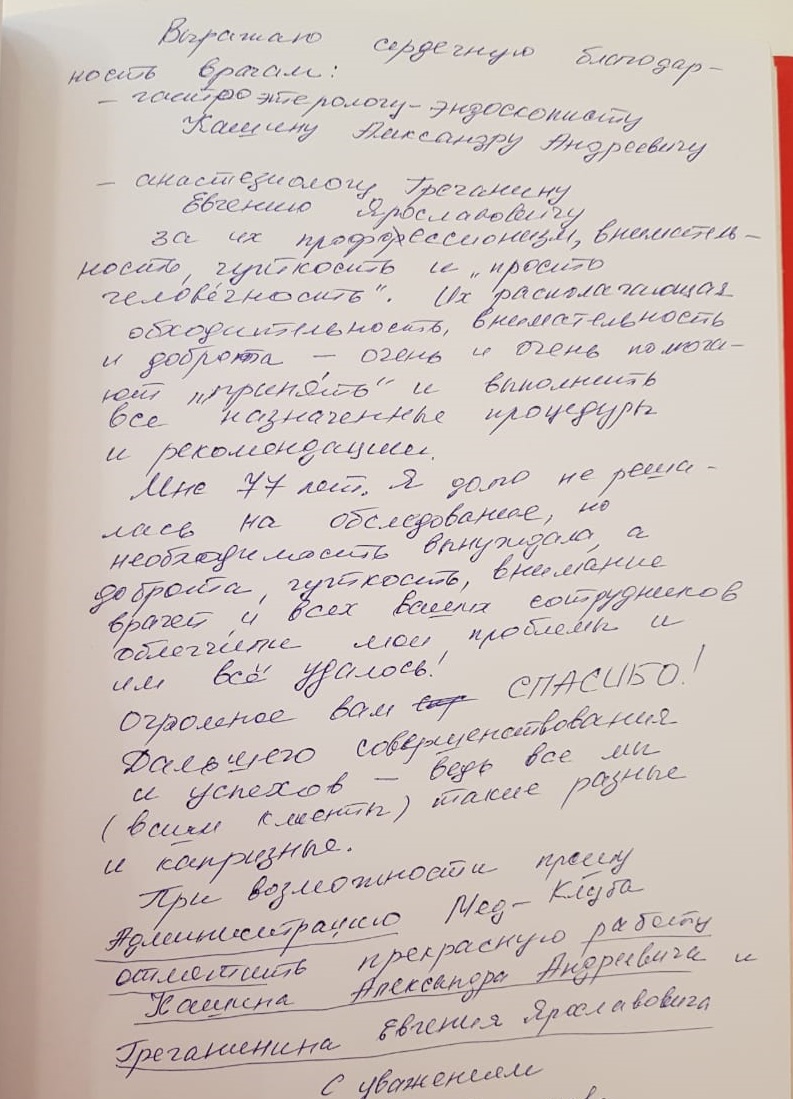 Выражаю сердечную благодар-
ность врачам:
- гастроэнтерологу-эндоскописту
Кашину Александру Андреевичу
- анастезиологу Треганину
Евгению Ярославовичу
за их профессионизм, вниматель-
ность, чуткость и „просто
человечность". Их располагающая
обходительность, внимательность
и доброта - очень и очень помога-
ют „принять" и выполнить
все назначенные процедуры
и рекомендации.
Мне 77 лет. Я долго не реша-
лась на обследование, но
необходимость вынуждала, а
доброта, чуткость, внимание
врачей и всех ваших сотрудников
облегчили мои проблемы и
им всё удалось!
Огромное вам СПАСИБО!
Дальшего совершенствования
и успехов - ведь все мы
(ваши клиенты) такие разные
и капризные.
При возможности прошу
Администрацию Мед-Клуба
отметить прекрасную работу
Кашина Александра Андреевича и
Треганинина Евгения Ярославовича
С уважением